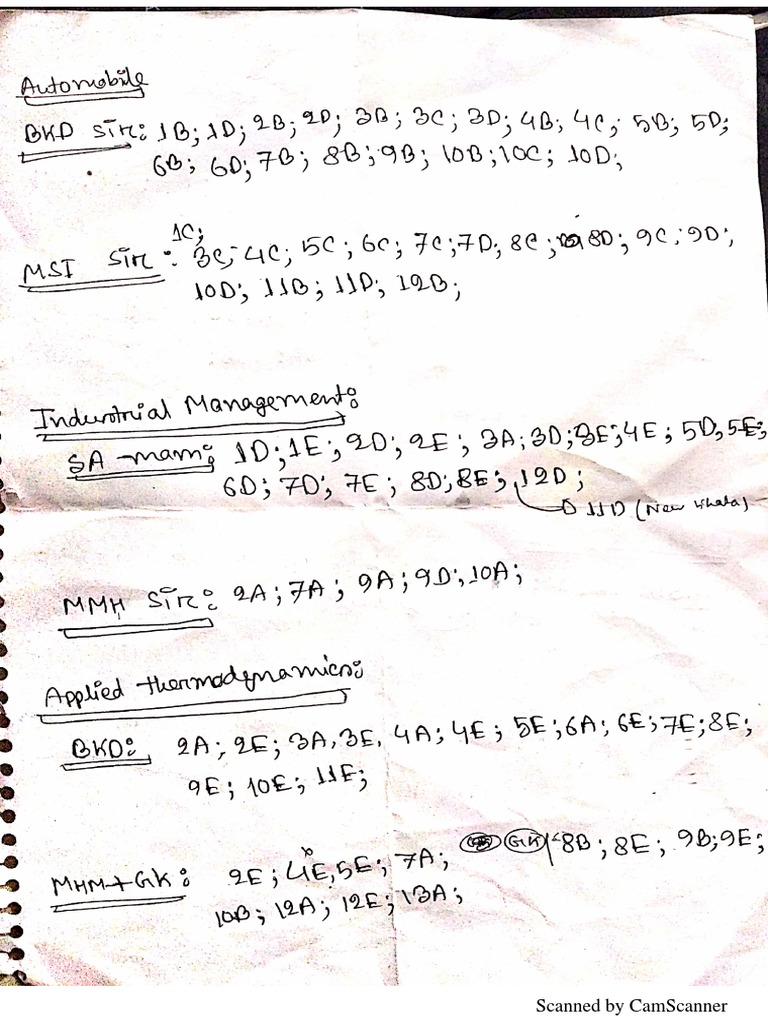 Automobile
BKD Sir: 1B; 1D; 2B; 2D; 3B; 3C; 3D; 4B; 4C; 5B; 5D;
6B; 6D; 7B; 8B; 9B; 10B; 10C; 10D;
1C;
MSI Sir: 3C; 4C; 5C; 6C; 7C; 7D; 8C; 8D; 9C; 9D;
10D; 11B; 11D; 12B;
Industrial Management:
SA-mam: 1D; 1E; 2D; 2E; 3A; 3D; 3E; 4E; 5D, 5E;
6D; 7D; 7E; 8D; 8E; 12D;
11D (New
MMH Sir: 2A; 7A; 9A; 9D; 10A;
Applied thermodynamics:
BKD: 2A; 2E; 3A, 3E, 4A; 4E; 5E; 6A; 6E; 7E; 8E;
9E; 10E; 11E;
MHM+GK: 2E; 4E, 5E; 7A; GK 8B; 8E; 9B; 9E;
10B; 12A; 12E; 13A;
Scanned by CamScanner